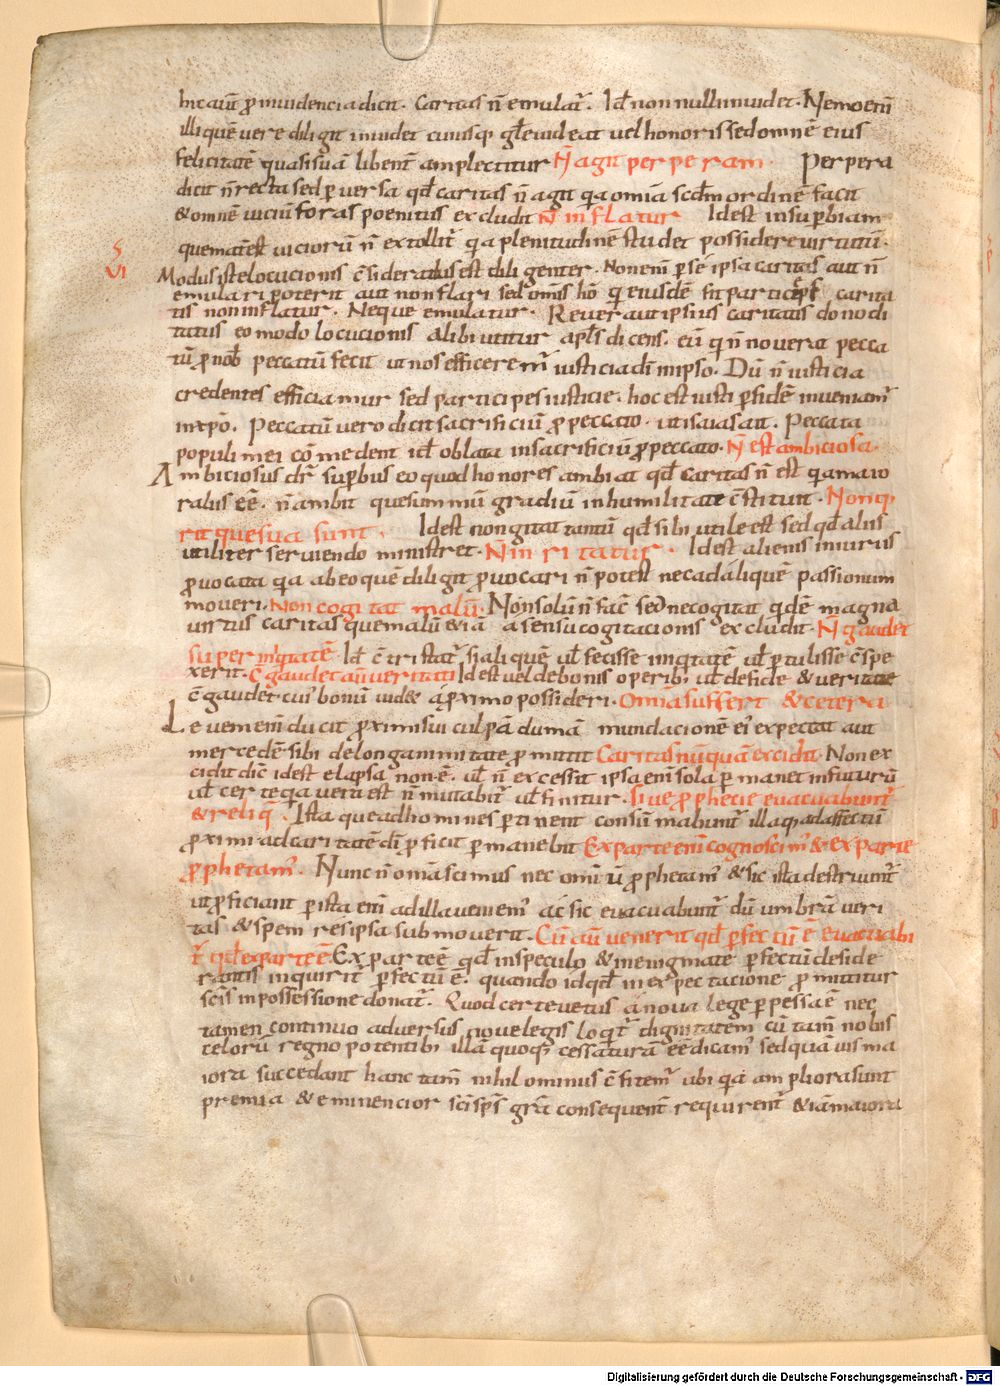 hic aut̄ ꝓ inuidencia dicit. Caritas n̄ emulat᷑. Id̄ non nulli inuidet. Nemo eni̅
illi quē vere diligit inuidet cuiusq; gl̄e uideat vel honoris sed omnē eius
felicitatē quasi suā libent̄ amplectitur N̄ agit perperam. Perpera
dicit n̄ recta sed ꝑversa qd̄ caritas n̄ agit q̄a omīa scd̄m ordinē facit
& omnē viciū foras poenitus excludit N̄ inflatur Idest in suꝑbiam
que mat̄ est viciorū n̄ extollit᷑ q̄a plenitudinē studet possidere virtutū.
S
VI
Modus iste locucionis c̄siderat̄dus est diligenter. Non eni̅ ꝑ se ipsa caritas aut n̄
emulari poterit aut non flari sed om̄is hō q̄ eiusdē fit particeps carita
tis non inflatur. Neque emulatur. Revera ut ipsius caritatis donodi
tatus eo modo locucionis alibi utitur apl̄s dicens. eū q̄ n̄ noverat pecca
tū ꝓ nob̄ peccatū fecit ut nos efficeremr̄ iusticia dī in ipso. Dū n̄ iusticia
credentes efficiamur sed participes iusticie. hoc est iusti ꝑ fidē inveniam᷑
in xp̄o. Peccatū vero dicit sacrificiū ꝓ peccato. ut isaias ait. Peccata
populi mei cōmedent id̄ oblata in sacrificiū ꝓ peccato. N̄ est ambiciosa.
Ambiciosus dr̄ suꝑbus eo quod honores ambiat qd̄ caritas n̄ est q̄a maio
ralis eē. n̄ ambit que summū gradiū in humilitate c̄stituit. Non q̄
rit que sua sunt. Idest non gitat tantū qd̄ sibi utile est sed qd̄ aliis
utiliter serviendo ministret. N̄ inritatur. Idest alienis iniuriis
ꝓvocata q̄a ab eo quē diligit ꝓvocari n̄ potest nec ad aliquē passionum
moveri. Non cogitat malū. Non solū n̄ fac̄ sed nec ogitat q̄dē magna
virtus caritas que malū & iā a sensu cogitacionis excludit. N̄ gaudet
super iniq̄tatē Id̄ c̄tristat᷑ si aliquē ul̄ fecisse iniq̄tatē ul̄ ꝑtulisse c̄spe
xerit. C̄gaudet aut̄ veritati Idest vel de bonis operib; ul̄ de fide & veritate
c̄gaudet cui᷑ bonū uid& a ꝓximo possideri. Omīa suffert & cetera
Leve meni̅ ducit ꝓximi sui culpā dum ā mundacionē ei᷑ expectat aut
mercedē sibi de longanimitate ꝓmittit Caritas nū quā excidit. Non ex
cidit dic̄ idest elapsa non ē. ul̄ n̄ excessit ipsa eni̅ sola ꝑmanet in futurū
ul̄ certe q̄a vera est n̄ mutabit᷑ ul̄ finitur. Sive ꝓphecie evacuabunt᷑
& reliq̄. Ista que ad homines ꝑtinent consūmabunt᷑ illa q̄ ad affectū
ꝓximi ad caritatē dī ꝓficit ꝑmanebit Ex parte eni̅ cognoscim᷑ & ex parte
ꝓphetam᷑. Nunc n̄ omīa scimus nec omi̅ū ꝓphetam᷑ & sic ista destriunt᷑
ut ꝓficiant ꝑ ista eni̅ ad illa veniem᷑ ac sic evacuabunt᷑ dū umbrā veri
tas & spem res ipsa submoverit. Cū aut̄ venerit qd̄ ꝑfectū ē evacuabi
t᷑ qd̄ ex parte ē Ex parte ē qd̄ in speculo & in enigmate ꝑfectū deside
rantis inquirit᷑ ꝑfectū ē. quando id qd̄ in expectacione ꝓmittitur
scīs in possessione donat᷑. Quod certe vetus a nova lege ꝑpessa ē nec
tamen continuo adversus nove legis loq̄t᷑ dignitatem cū tam̄ nobis
celorū regno potentibus illā quoq; cessaturā eē dicam᷑ sed quāvis ma
iora succedant hanc tam̄ nihilominus c̄fitem᷑ ubi q̄a ampliora sunt
premia & eminencior scī sp̄s grā consequent̄ requirent᷑ & iā maiora
Digitalisierung gefördert durch die Deutsche Forschungsgemeinschaft - DFG